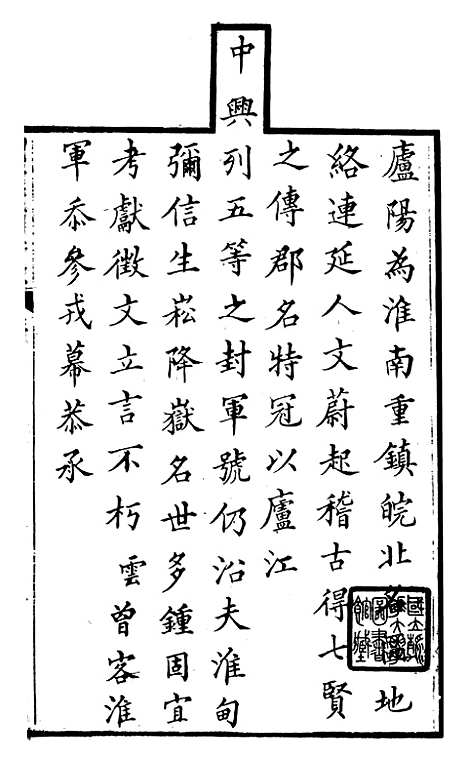 廬陽為淮南重鎮皖北名地
絡連延人文蔚起稽古得七賢
之傳郡名特冠以廬江
中興列五等之封軍號仍沿夫淮甸
彌信生崧降嶽名世多鍾固宜
考獻徵文立言不朽雲曾客淮
軍忝參戎幕恭承